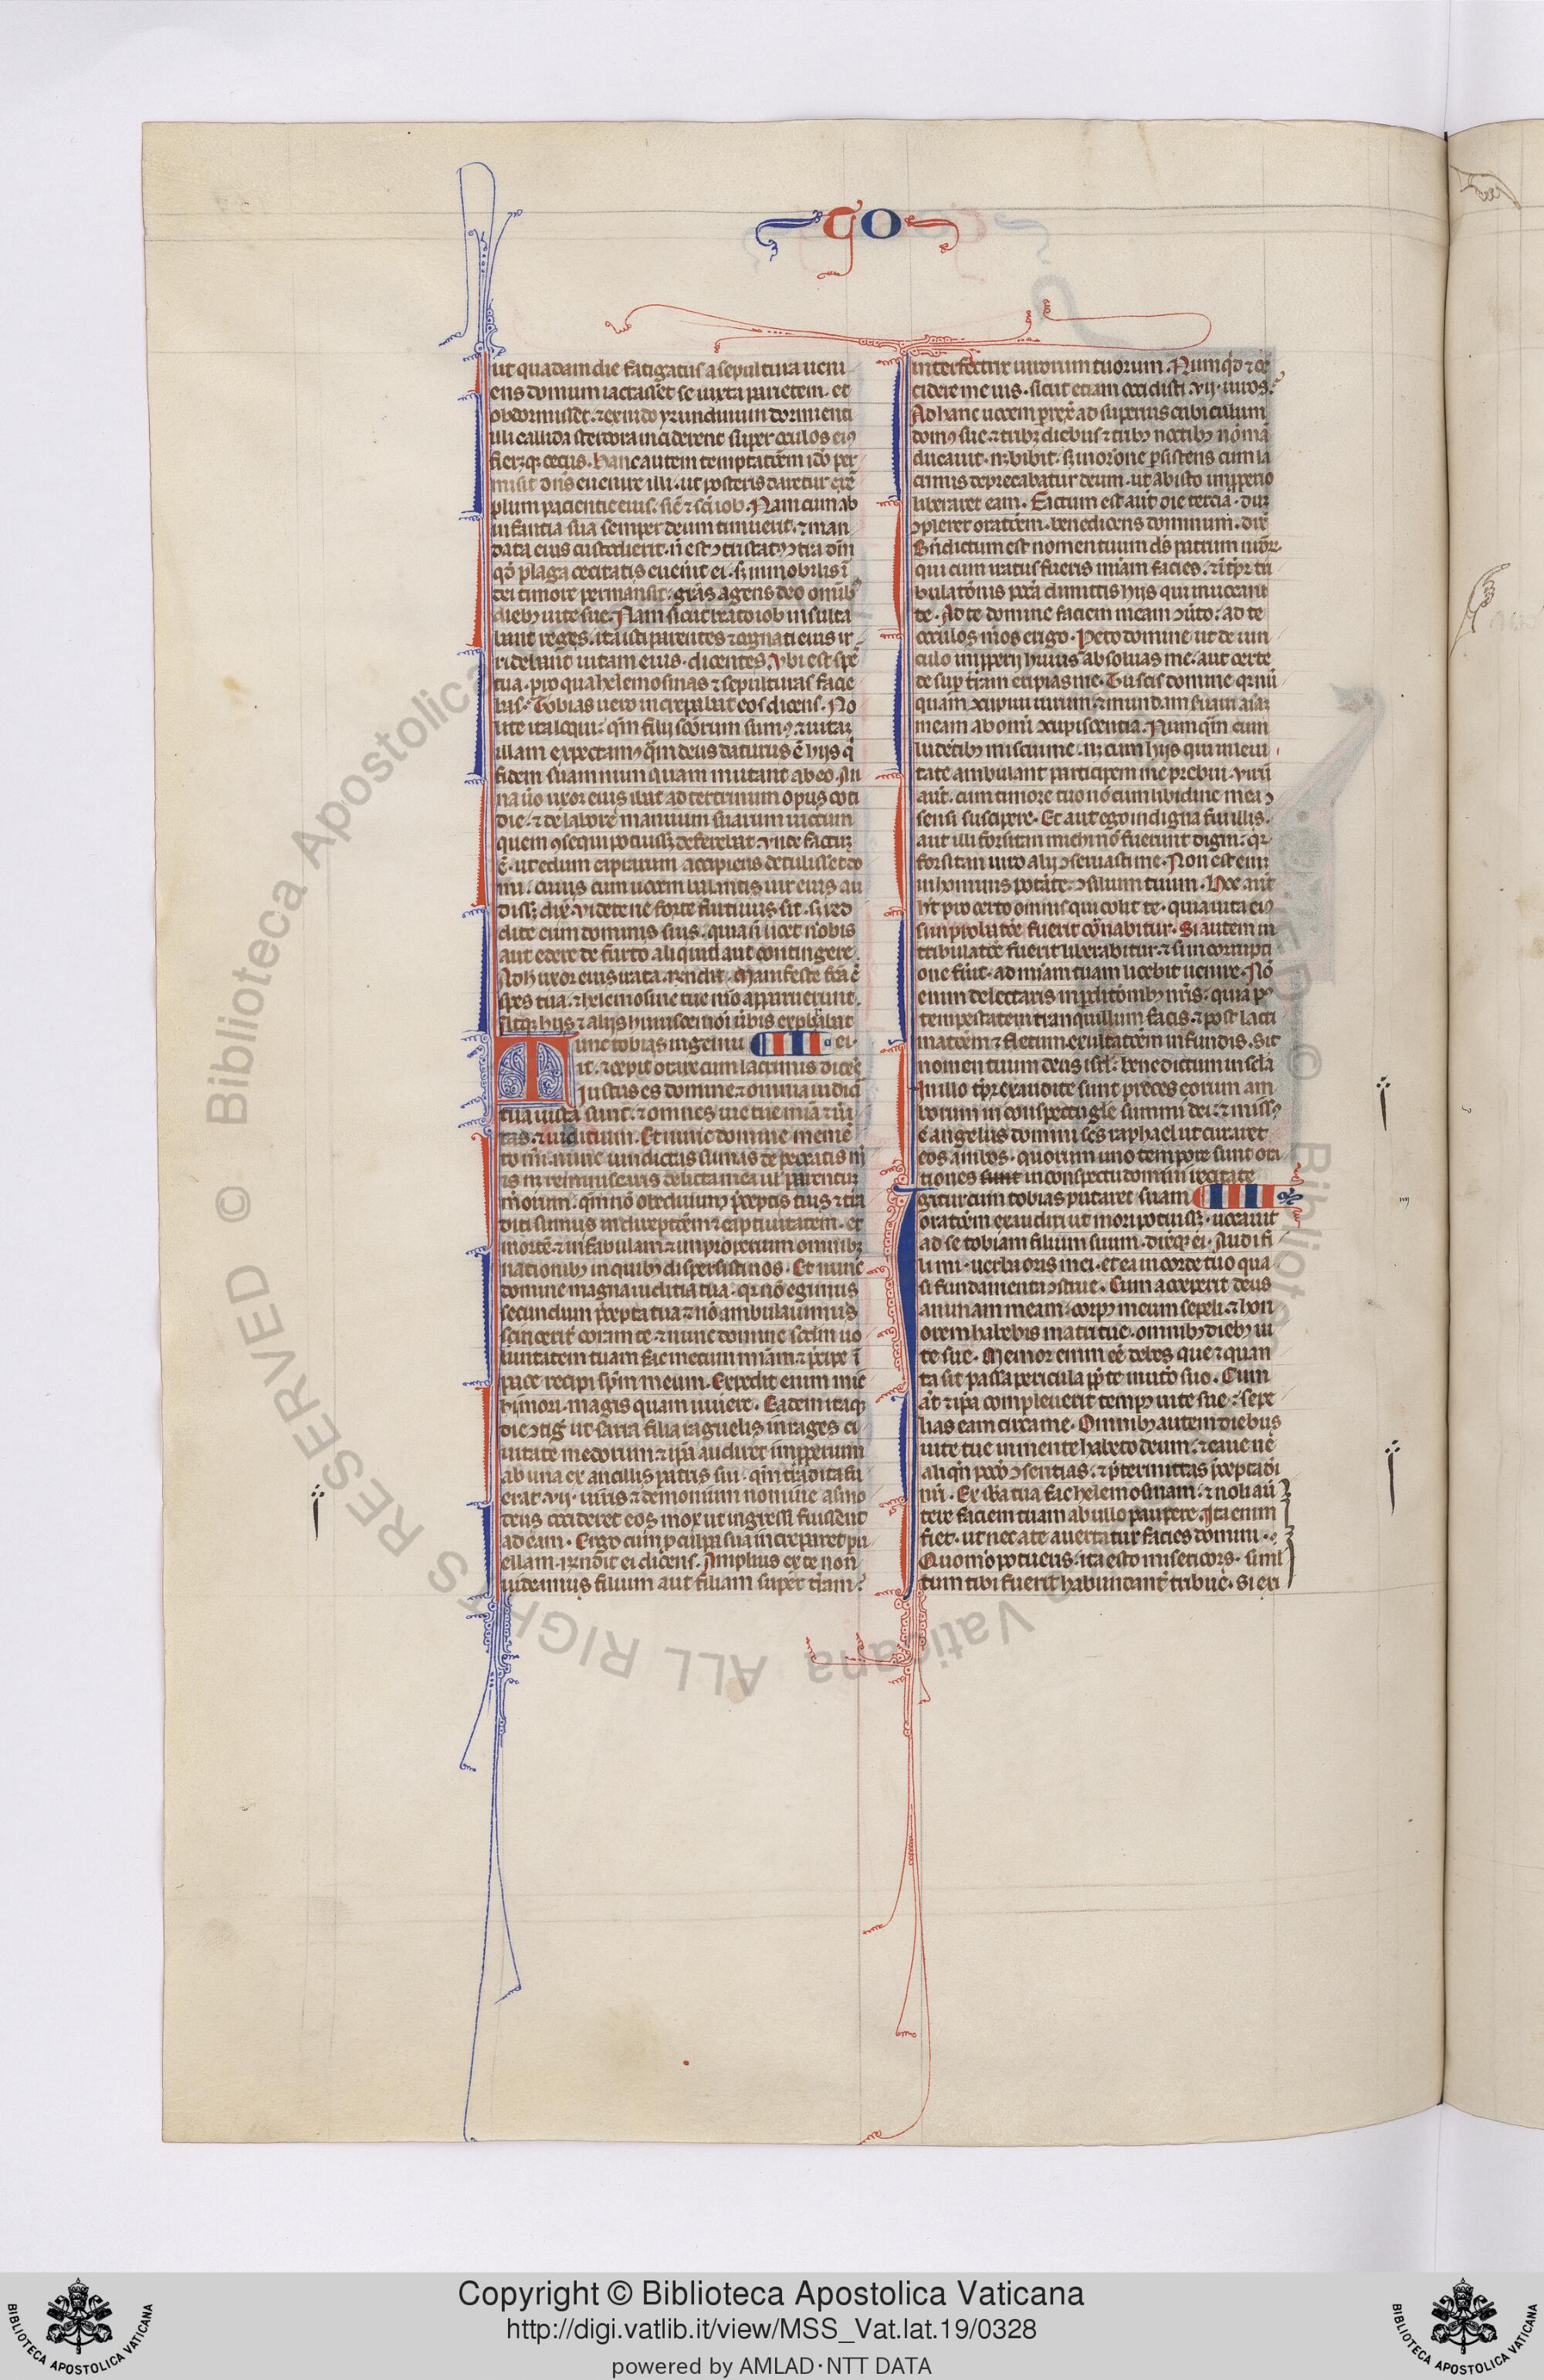 ut quadam die fatigatus a sepultura ueni
ens domum iactasset se iuxta parietem. et
obdormisset. ⁊ ex nido yrundinum dormienti
illi callida stercora inciderent super oculos eiꝰ
fieretqꝫ cecus. hanc autem temptatōem iđo per
misit dn̄s euenire illi. ut posteris daretur exē
plum paciencie eius. sic̄ ⁊ sc̄i iob. Nam cum ab
infantia sua semper deum timuerit. ⁊ man
data eius custodierit. n̄ est ↄtristatꝰ ↄtra dm̄
qđ plaga cecitatis euen̄it ei. sꝫ inmobilis ī
dei timore permansit. grās agens deo omībꝰ
diebꝰ uite sue. Nam sicut beato iob insulta
bant reges. ita isti parentes ⁊ cognati eius ir
ridebant uitam eius. dicentes. Vbi est spes
tua. pro qua helemosinas ⁊ sepulturas facie
bas. Tobias uero increpabat eos dicens. No
lite ita loqui. qm̄ filii sc̄orum sumꝰ. ⁊ uitam
illam expectamꝰ qm̄ deus daturus ē hijs qͥ
fidem suam nunquam mutant ab eo. An
na u̇o uxor eius ibat ad textrinum opus coti
die. ⁊ de labore manuum suarum uictum
quem ↄsequi potuissꝫ deferebat. vnde factum
ē. ut edum caprarum accipiens detulisset do
mi. cuius cum uocem balantis uir eius au
dissꝫ. dix̄. videte ne forte furtiuus sit. sꝫ red
dite eum dominis suis. quia n̄ licet nobis
aut edere de furto aliquid aut contingere.
Ad h̄ uxor eius irata. rn̄dit. Manifeste fc̄a ē
spes tua. ⁊ helemosine tue m̊o apparuerunt.
Atqꝫ hijs ⁊ alijs huiuscemōi u̇bis exprobabat
Tunc tobias ingemu ei.
it. ⁊ cepit orare cum lacrimis dicēs
Justus es domine ⁊ omnia iudicia
tua iusta sunt. ⁊ omnes uie tue mīa ⁊ u̇i
tas. ⁊ iudicium. Et nunc domine memē
to mī. nunc uindictas sumas de peccatis m̄
is nꝫ reminiscaris delicta mea uł parentum
meorum. qm̄ nō obediuimꝰ p̄ceptis tuis ⁊ tra
diti sumus in direptōem ⁊ captiuitatem. et
mortē ⁊ in fabulam ⁊ improperium omnibꝫ
nationibꝰ in quibꝰ dispersisti nos. Et nunc
domine magna iudicia tua. qꝛ nō egimus
secundum p̄cepta tua ⁊ nō ambulauimus
sinceriꝉ coram te. ⁊ nunc domine scd̄m uo
luntatem tuam fac mecum mīam. ⁊ p̄cipe ī
pace recipi spm̄ meum. Expedit enim mic
hi mori. magis quam uiuere. Eadem itaqꝫ
die ↄtig̃ ut sarra filia raguelis in rages ci
uitate medorum. ⁊ ipa audiret īmpꝑerium
ab una ex ancillis patris sui. qm̄ tradita fu
erat. vij. uiris ⁊ demonium nomine asmo
deus occideret eos mox ut ingressi fuissent
ad eam. Ergo cum p culpa sua increparet pu
ellam. rn̄dit ei dicens. Amplius ex te non
uideamus filium aut filiam super tr̄am.
interfectrix uirorum tuorum. Numqđ ⁊ oc
cidere me uis. sicut etiam occidisti. vij. uiros.
Ad hanc uocem ꝑrex̄ ad superius cubiculum
domꝰ sue. ⁊ tribꝫ diebus ⁊ tribꝰ noctibꝰ nō mā
ducauit. nꝫ bibit. sꝫ in or̄one ꝑsistens cum la
crimis deprecabatur deum. ut ab isto impꝑerio
liberaret eam. Factum est aut̄ die tercia. dum
ↄpleret oratōem. benedicens dominum. dix̄
Bn̄dictum est nomen tuum ds̄ patrum nr̄or.
qui cum iratus fueris mīam facies. ⁊ tp̄r tri
bulatōnis pcc̄a dimittis hijs qui inuocant
te. Ad te domine faciem meam ↄu̇to. ad te
oculos mōs erigo. Peto domine ut de uin
culo impꝑerij huius absoluas me. aut certe
desup tr̄am eripias me. Tu scis domine qꝛ nū
quam ↄcupiui uirum. ⁊ mundam seruaui aīam
meam ab omī ↄcupiscentia. Numqm̄ cum
ludētibꝰ miscui me. nꝫ cum hijs qui in leui
tate ambulant participem me prebui. virū
aut̄. cum timore tuo nō cum libidine mea ↄ
sensi suscipere. Et aut ego indigna fui illis.
aut illi forsitan michi nō fuerunt digni. qꝛ
forsitan uiro alij ↄseruasti me. Non est enim
in hominis potāte ↄsilium tuum. Hoc aut̄
ht̄ pro certo omnis qui colit te. quia uita eiꝰ
si in probatōe fuerit coronabitur. Si autem in
tribulatōe fuerit liberabitur. ⁊ si in corrupti
one fūit. ad mīam tuam licebit uenire. Nō
enim delectaris in ꝑditōnibꝰ nr̄is. quia pꝰ
tempestatem tranquillum facis. ⁊ post lacri
matōem ⁊ fletum. exultatōem infundis. Sit
nomen tuum deus isrł. benedictum in sc̄la
In illo tp̄r exaudite sunt preces eorum am
borum in conspectu głe summi dei. ⁊ missꝰ
ē angelus domini sc̄s raphael ut curaret
eos ambos. quorum uno tempore sunt ora
tiones sunt in conspectu domini recitate
Igitur cum tobias putaret suam
oratōem exaudiri ut mori potuissꝫ. uocauit
ad se tobiam filium suum. dixitqꝫ ei. Audi fi
li mi. uerba oris mei. et ea in corde tuo qua
si fundamentū ↄstrue. Cum acceperit deus
animam meam. corpꝰ meum sepeli. ⁊ hon
orem habebis matri tue. omnibꝰ diebꝰ ui
te sue. Memor enim eē debes que ⁊ quan
ta sit passa pericula ꝓpt̄ te in utō suo. Cum
aūt ⁊ ipa compleuerit tempꝰ uite sue. sepe
lias eam circa me. Omnibꝰ autem diebus
uite tue in mente habeto deum. ⁊ caue nē
aliqn̄ pcc̄o ↄsentias. ⁊ p̄termittas p̄cepta dei
nr̄i. Ex sb̄a tua fac helemosinam. ⁊ noli auer
tere faciem tuam ab ullo paupere. Ita enim
fiet. ut nec a te auertatur facies domini.
Quom̊o potueris. ita esto misericors. si mul
tum tibi fuerit habundant̄ tribue. Si exi
Copyright © Biblioteca Apostolica Vaticana
http://digi.vatlib.it/view/MSS_Vat.lat.19/0328
powered by AMLAD·NTT DATA
BIBLIOTECA APOSTOLICA VATICANA
BIBLIOTECA APOSTOLICA VATICANA
© Biblioteca Apostolica Vaticana ALL RIGHTS RESERVED